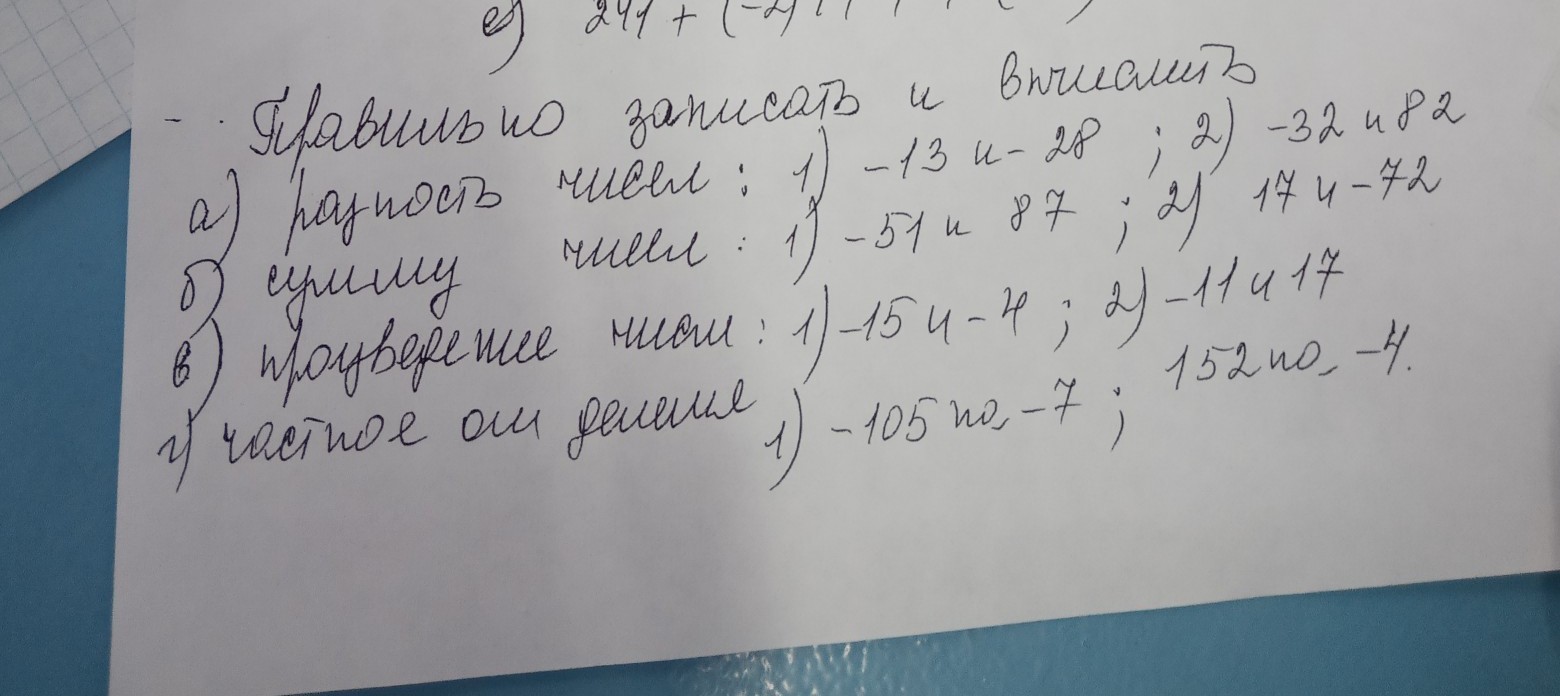 е) 241 + (-2)
Правильно записать и вычислить
а) разность чисел : 1) -13 и -28 ; 2) -32 и 82
б) сумму чисел : 1) -51 и 87 ; 2) 17 и -72
в) произведение чисел : 1) -15 и -4 ; 2) -11 и 17
г) частное от деления 1) -105 на -7 ; 152 на -4.